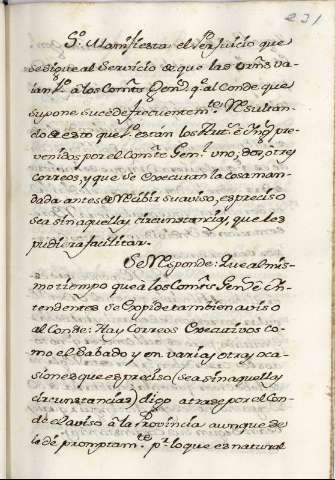 231
Sº. Manifiesta el Perjuicio que
se sigue al Servicio de que las orñs va-
ian pª. â los Comtes. Genes. qº. al Conde, que
supone sucede frecuentemte. Resultan-
do de esto que pª. están los Rutº. é Ings pre-
venidos por el Comte. Genl. uno, dos, ô tres
correos, y que se executan la cosa man-
dada antes de Recibir su aviso, es preciso
sea sin aquellas circunstancias, que les
pudiera facilitar.
Se Responde: Que al mis-
mo tiempo que â los Comts. Gens. é In-
tendentes se expide tambien aviso
al Conde: Hay Correos executivos co-
mo el Sabado y en varias otras oca-
siones que es preciso (sea sin aquellas
circunstancias) dijo atrase por el Con-
de el aviso â la Provincia aunque se
la dé promptamte. pr. lo que es natural